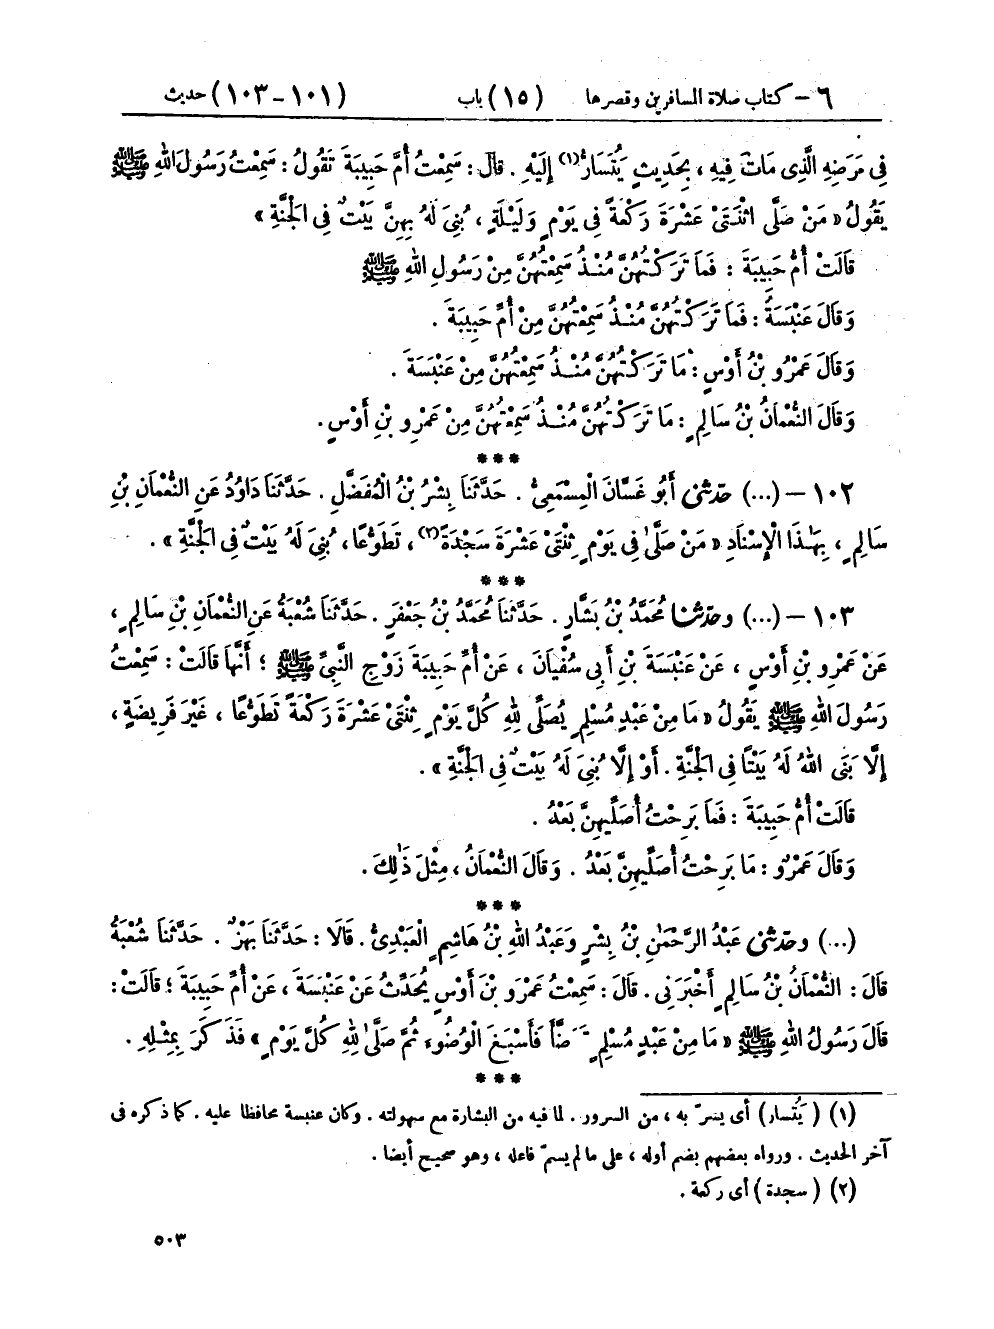 ٦ – كتاب صلاة المسافرين وقصرها (١٥) باب (١٠١–١٠٣) حديث
فِى مَرَضِهِ الَّذِى مَاتَ فِيهِ ، بِحَدِيثٍ يُتَسَارُّ(١) إِلَيْهِ . قَالَ : سَمِعْتُ أُمَّ حَبِيبَةَ تَقُولُ : سَمِعْتُ رَسُولَ اللهِ ﷺ
يَقُولُ « مَنْ صَلَّى اثْنَتَىْ عَشْرَةَ رَكْعَةً فِى يَوْمٍ وَلَيْلَةٍ ، بُنِىَ لَهُ بِهِنَّ بَيْتٌ فِى الْجَنَّةِ »
قَالَتْ أُمُّ حَبِيبَةَ : فَمَا تَرَكْتُهُنَّ مُنْذُ سَمِعْتُهُنَّ مِنْ رَسُولِ اللهِ ﷺ
وَقَالَ عَنْبَسَةُ : فَمَا تَرَكْتُهُنَّ مُنْذُ سَمِعْتُهُنَّ مِنْ أُمِّ حَبِيبَةَ .
وَقَالَ عَمْرُو بْنُ أَوْسٍ : مَا تَرَكْتُهُنَّ مُنْذُ سَمِعْتُهُنَّ مِنْ عَنْبَسَةَ .
وَقَالَ النُّعْمَانُ بْنُ سَالِمٍ : مَا تَرَكْتُهُنَّ مُنْذُ سَمِعْتُهُنَّ مِنْ عَمْرِو بْنِ أَوْسٍ .
***
١٠٢ – (...) حَدَّثَنِى أَبُو غَسَّانَ الْمِسْمَعِىُّ . حَدَّثَنَا بِشْرُ بْنُ الْمُفَضَّلِ . حَدَّثَنَا دَاوُدُ عَنِ النُّعْمَانِ بْنِ
سَالِمٍ ، بِهَٰذَا الْإِسْنَادِ « مَنْ صَلَّىٰ فِى يَوْمٍ ثِنْتَىْ عَشْرَةَ سَجْدَةً(٢) ، تَطَوُّعًا ، بُنِىَ لَهُ بَيْتٌ فِى الْجَنَّةِ » .
***
١٠٣ – (...) وحَدَّثَنَا مُحَمَّدُ بْنُ بَشَّارٍ . حَدَّثَنَا مُحَمَّدُ بْنُ جَعْفَرٍ . حَدَّثَنَا شُعْبَةُ عَنِ النُّعْمَانِ بْنِ سَالِمٍ ،
عَنْ عَمْرِو بْنِ أَوْسٍ ، عَنْ عَنْبَسَةَ بْنِ أَبِى سُفْيَانَ ، عَنْ أُمِّ حَبِيبَةَ زَوْجِ النَّبِىِّ ﷺ ؛ أَنَّهَا قَالَتْ : سَمِعْتُ
رَسُولَ اللهِ ﷺ يَقُولُ « مَا مِنْ عَبْدٍ مُسْلِمٍ يُصَلِّى لِلهِ كُلَّ يَوْمٍ ثِنْتَىْ عَشْرَةَ رَكْعَةً تَطَوُّعًا ، غَيْرَ فَرِيضَةٍ ،
إِلَّا بَنَى اللهُ لَهُ بَيْتًا فِى الْجَنَّةِ . أَوْ إِلَّا بُنِىَ لَهُ بَيْتٌ فِى الْجَنَّةِ » .
قَالَتْ أُمُّ حَبِيبَةَ : فَمَا بَرِحْتُ أُصَلِّيهِنَّ بَعْدُ .
وَقَالَ عَمْرٌو : مَا بَرِحْتُ أُصَلِّيهِنَّ بَعْدُ . وَقَالَ النُّعْمَانُ ، مِثْلَ ذَٰلِكَ .
***
(...) وحَدَّثَنِى عَبْدُ الرَّحْمَٰنِ بْنُ بِشْرٍ وَعَبْدُ اللهِ بْنُ هَاشِمٍ الْعَبْدِىُّ . قَالَا : حَدَّثَنَا بَهْزٌ . حَدَّثَنَا شُعْبَةُ
قَالَ : النُّعْمَانُ بْنُ سَالِمٍ أَخْبَرَنِى . قَالَ : سَمِعْتُ عَمْرَو بْنَ أَوْسٍ يُحَدِّثُ عَنْ عَنْبَسَةَ ، عَنْ أُمِّ حَبِيبَةَ ؛ قَالَتْ :
قَالَ رَسُولُ اللهِ ﷺ « مَا مِنْ عَبْدٍ مُسْلِمٍ تَوَضَّأَ فَأَسْبَغَ الْوُضُوءَ ثُمَّ صَلَّىٰ لِلهِ كُلَّ يَوْمٍ » فَذَكَرَ بِمِثْلِهِ .
***
(١) ( يُتَسار ) أى يسرّ به ، من السرور . لما فيه من البشارة مع سهولته . وكان عنبسة محافظا عليه . كما ذكره فى
آخر الحديث . ورواه بعضهم بضم أوله ، على ما لم يسمّ فاعله ، وهو صحيح أيضا .
(٢) ( سجدة ) أى ركعة .
٥٠٣